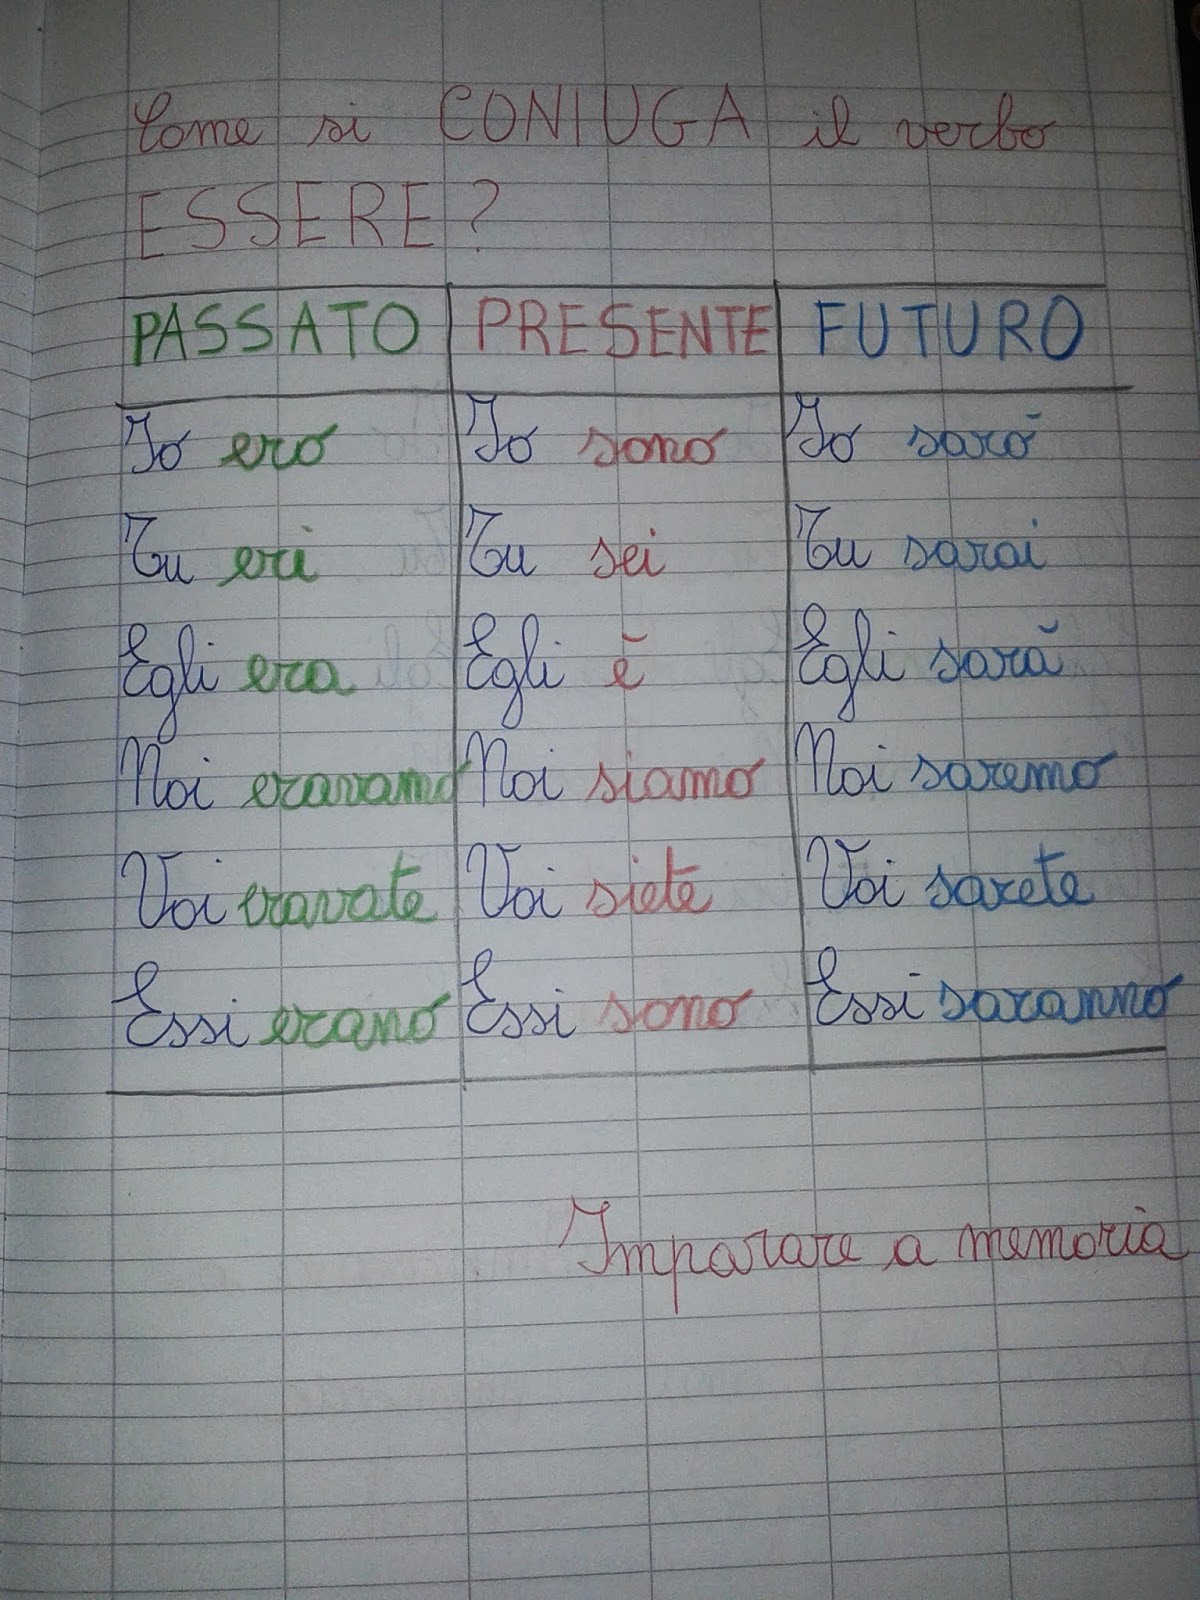 Come si CONIUGA il verbo
ESSERE?
PASSATO PRESENTE FUTURO
Io ero Io sono Io sarò
Tu eri Tu sei Tu sarai
Egli era Egli è Egli sarà
Noi eravamo Noi siamo Noi saremo
Voi eravate Voi siete Voi sarete
Essi erano Essi sono Essi saranno
Imparare a memoria